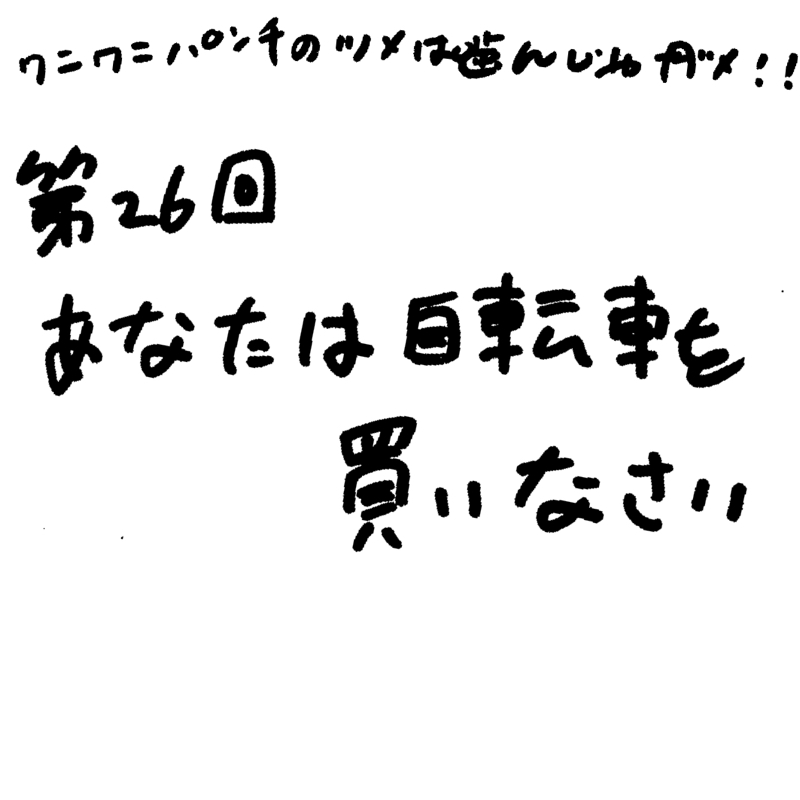 ワニワニパンチのツメは歯んじゃダメ!!
第26回
あなたは自転車を
買いなさい